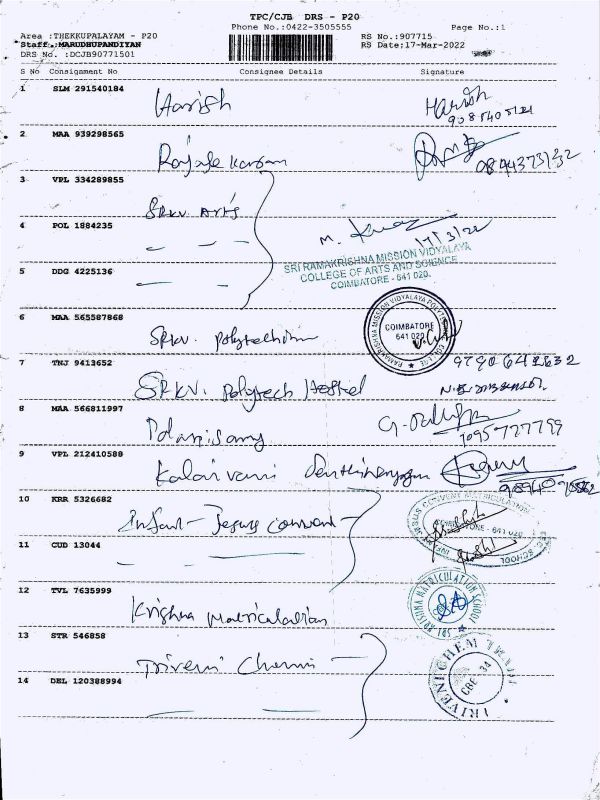 TPC/CJB DRS - P20
Phone No.:0422-3505555 Page No.:1
Area :THEKKUPALAYAM - P20 RS No.:907715
Staff.:MARUDHUPANDIYAN RS Date;17-Mar-2022
DRS No. :DCJB90771501
S No Consignment No Consignee Details Signature
1 SLM 291540184
Harish Harish
9087405121
2 MAA 939298565
Rajasekaran
3 VPL 334289855
SRKV. Arts
4 POL 1884235
M.
17/3/22
SRI RAMAKRISHNA MISSION VIDYALAYA
COLLEGE OF ARTS AND SCIENCE
COIMBATORE - 641 020.
5 DDG 4225136
6 MAA 565587868
SRKV. Polytechnic
RAMAKRISHNA MISSION VIDYALAYA POLYTECHNIC COLLEGE
COIMBATORE
641 020
7 TNJ 9413652
9790642632
SRKV. Polytech Hostel
8 MAA 566811997
Palanisamy
7095727799
9 VPL 212410588
Kalaivani
10 KRR 5326682
Infant - Jesus convent
INFANT JESUS CONVENT MATRICULATION SCHOOL
COIMBATORE - 641 020
11 CUD 13044
12 TVL 7635999
Krishna matriculation
SRI KRISHNA MATRICULATION SCHOOL
13 STR 546858
Triveni Chemi
TRIVENI CHEM
CBE - 34
14 DEL 120388994